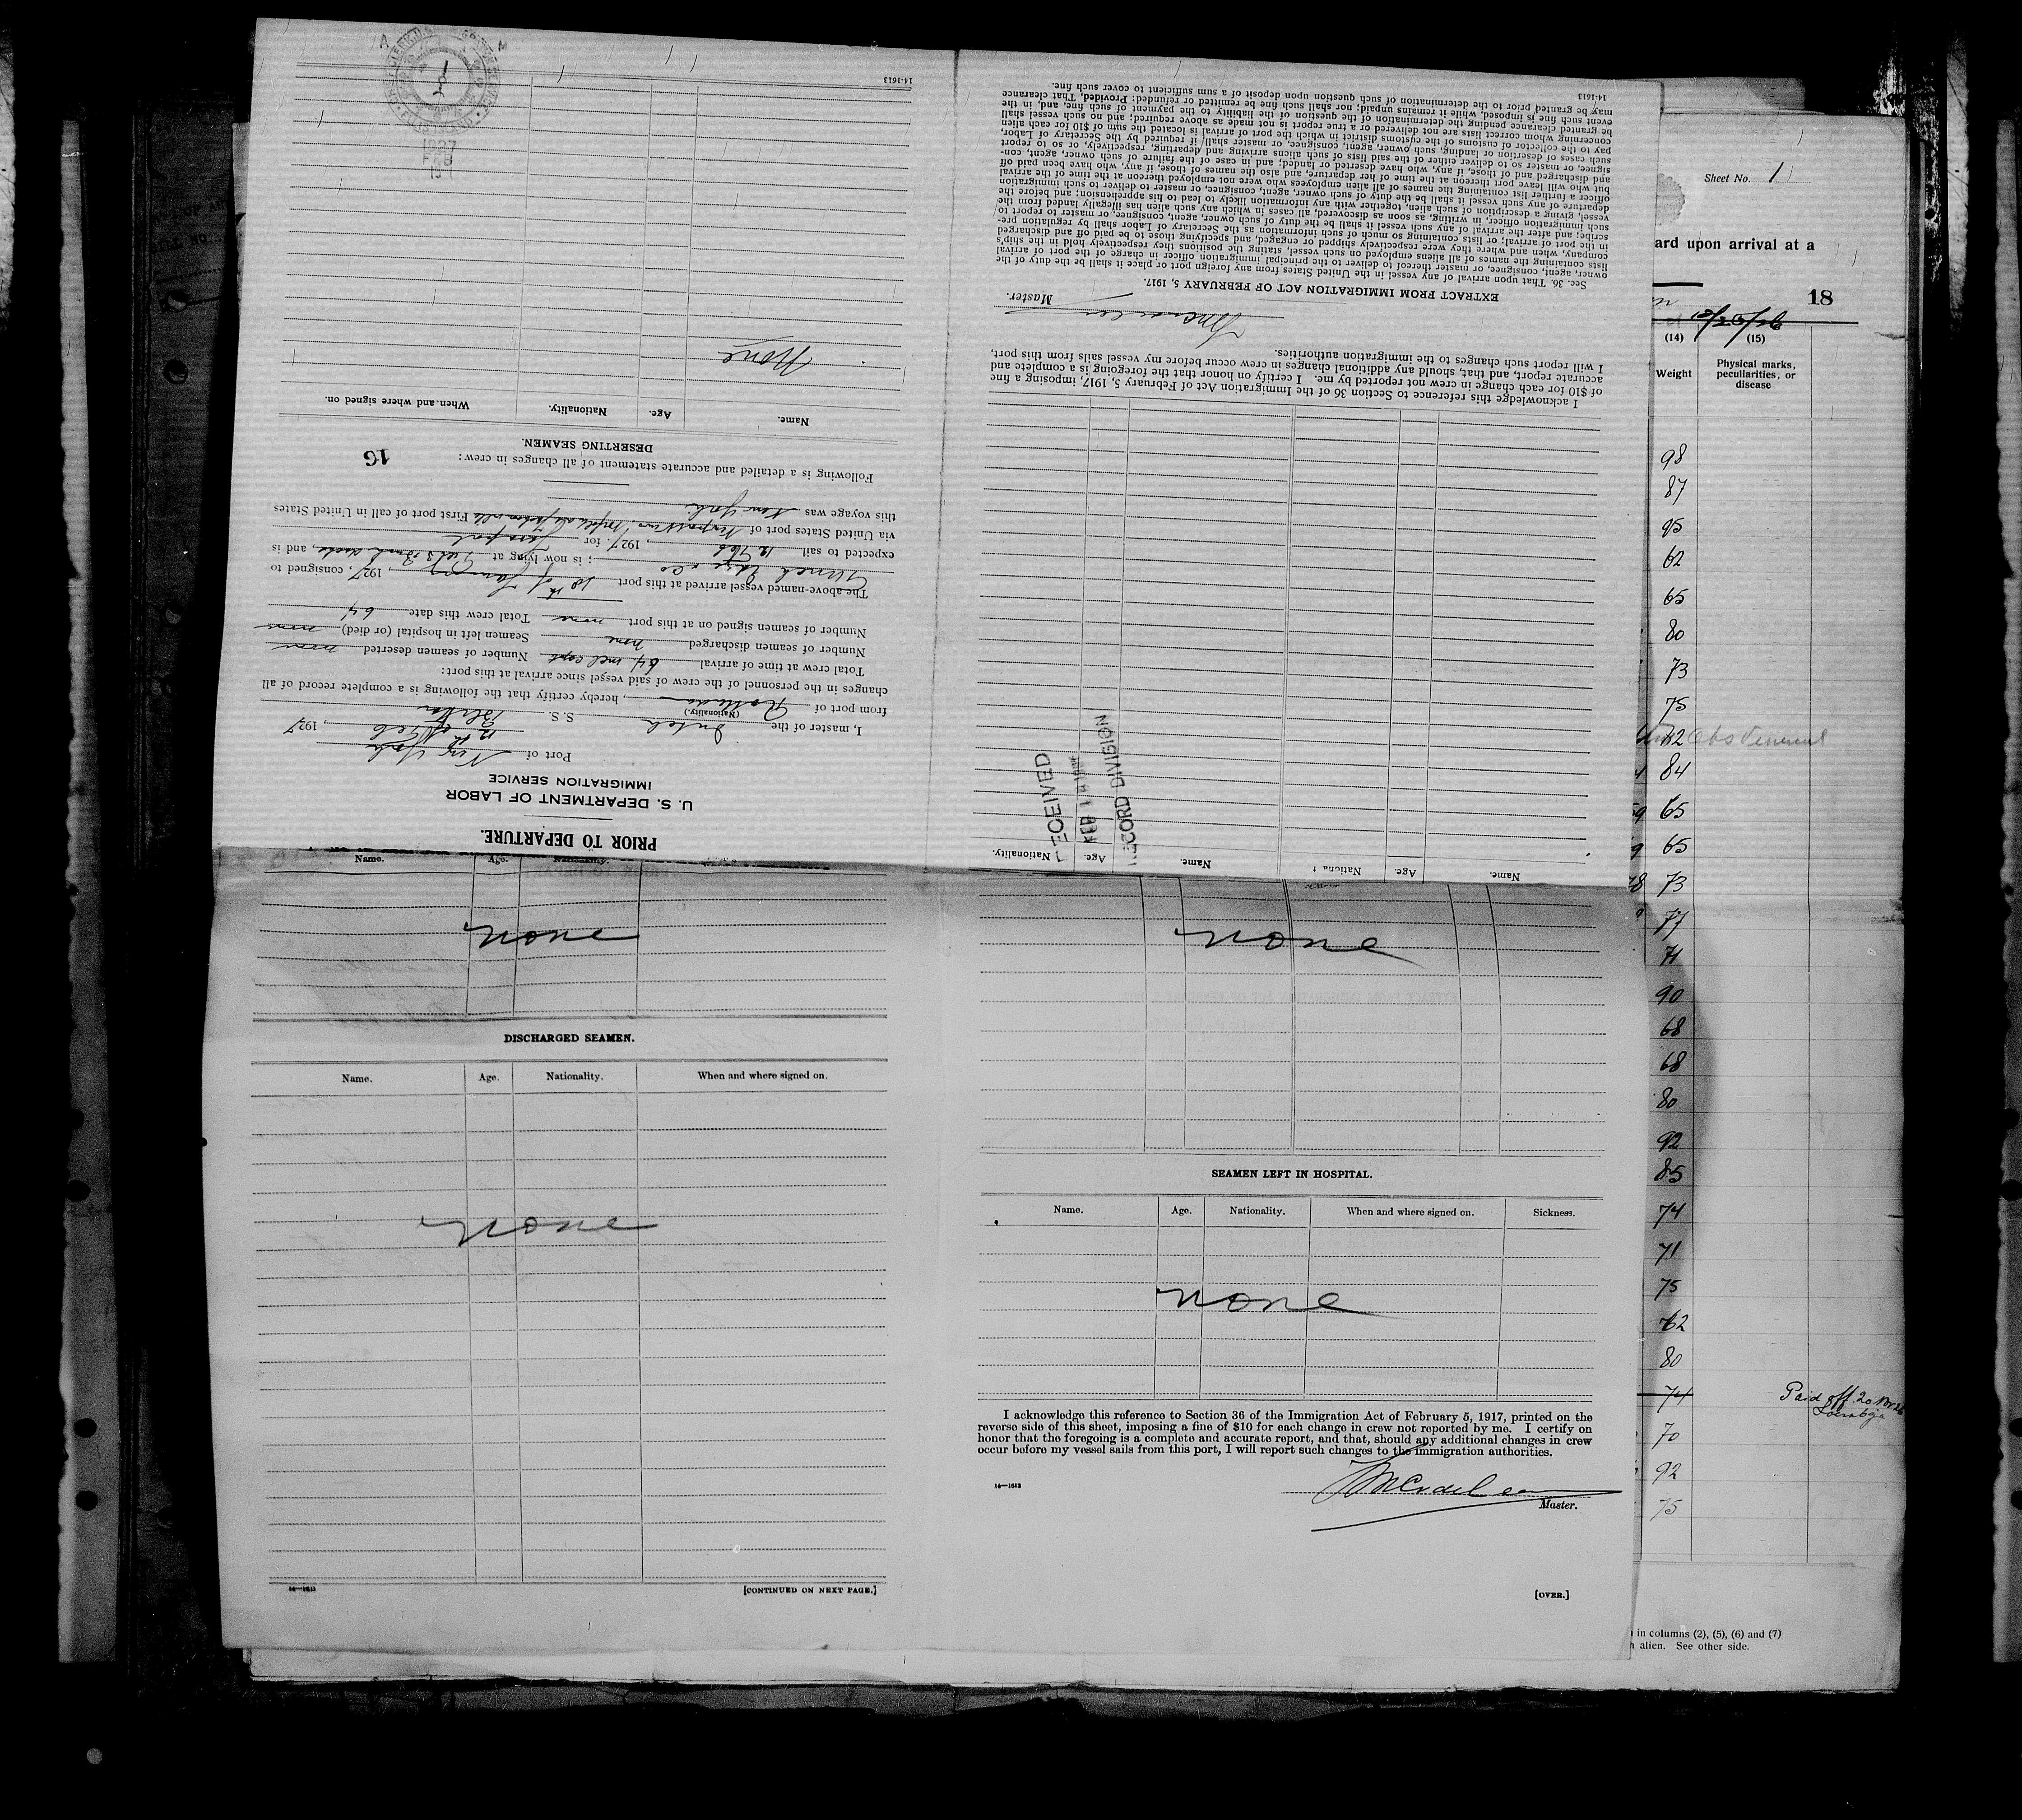 PRIOR TO DEPARTURE.
U. S. DEPARTMENT OF LABOR
IMMIGRATION SERVICE
Port of New York
12th of Feb, 1927
I, master of the Dutch S. S.
(Nationality.)
from port of, hereby certify that the following is a complete record of all
changes in the personnel of the crew of said vessel since arrival at this port:
Total crew at time of arrival 64 incl capt Number of seamen deserted none
Number of seamen discharged none Seamen left in hospital (or died) none
Number of seamen signed on at this port none Total crew this date 64
The above-named vessel arrived at this port, 1927, consigned to
; is now lying at, and is
expected to sail 12 Feb, 1927, for
via United States port of First port of call in United States
this voyage was New York
Following is a detailed and accurate statement of all changes in crew:
16
DESERTING SEAMEN.
Name. Age. Nationality. When and where signed on.
None
14-1613
1927
FEB
Name. Age. Nationality. Name. Age. Nationality.
RECEIVED
FEB
RECORD DIVISION
I acknowledge this reference to Section 36 of the Immigration Act of February 5, 1917, imposing a fine
of $10 for each change in crew not reported by me. I certify on honor that the foregoing is a complete and
accurate report, and that, should any additional changes in crew occur before my vessel sails from this port,
I will report such changes to the immigration authorities.
Master.
EXTRACT FROM IMMIGRATION ACT OF FEBRUARY 5, 1917.
Sec. 36. That upon arrival of any vessel in the United States from any foreign port or place it shall be the duty of the
owner, agent, consignee, or master thereof to deliver to the principal immigration officer in charge of the port of arrival
lists containing the names of all aliens employed on such vessel, stating the positions they respectively hold in the ship's
company, when and where they were respectively shipped or engaged, and specifying those to be paid off and discharged
in the port of arrival; or lists containing so much of such information as the Secretary of Labor shall by regulation pre-
scribe; and after the arrival of any such vessel it shall be the duty of such owner, agent, consignee, or master to report to
such immigration officer, in writing, as soon as discovered, all cases in which any such alien has illegally landed from the
vessel, giving a description of such alien, together with any information likely to lead to his apprehension; and before the
departure of any such vessel it shall be the duty of such owner, agent, consignee, or master to deliver to such immigration
officer a further list containing the names of all alien employees who were not employed thereon at the time of the arrival
but who will leave port thereon at the time of her departure, and also the names of those, if any, who have been paid off
and discharged and of those, if any, who have deserted or landed; and in case of the failure of such owner, agent, con-
signee, or master so to deliver either of the said lists of such aliens arriving and departing, respectively, or so to report
such cases of desertion or landing, such owner, agent, consignee, or master shall, if required by the Secretary of Labor,
pay to the collector of customs of the customs district in which the port of arrival is located the sum of $10 for each alien
concerning whom correct lists are not delivered or a true report is not made as above required; and no such vessel shall
be granted clearance pending the determination of the question of the liability to the payment of such fine, and, in the
event such fine is imposed, while it remains unpaid; nor shall such fine be remitted or refunded: Provided, That clearance
may be granted prior to the determination of such question upon deposit of a sum sufficient to cover such fine.
14-1613
Name. Age. Nationality.
none
DISCHARGED SEAMEN.
Name. Age. Nationality. When and where signed on.
none
14—1613
[CONTINUED ON NEXT PAGE.]
none
SEAMEN LEFT IN HOSPITAL.
Name. Age. Nationality. When and where signed on. Sickness.
none
I acknowledge this reference to Section 36 of the Immigration Act of February 5, 1917, printed on the
reverse side of this sheet, imposing a fine of $10 for each change in crew not reported by me. I certify on
honor that the foregoing is a complete and accurate report, and that, should any additional changes in crew
occur before my vessel sails from this port, I will report such changes to the immigration authorities.
14—1613
Master.
[OVER.]
Sheet No. 1
ard upon arrival at a
18
(14) (15)
Weight Physical marks,
peculiarities, or
disease
98
87
95
62
65
80
73
75
72
84
65
65
73
77
71
90
68
68
80
92
85
74
71
75
62
80
74 Paid off 20
70
92
75
in columns (2), (5), (6) and (7)
alien. See other side.